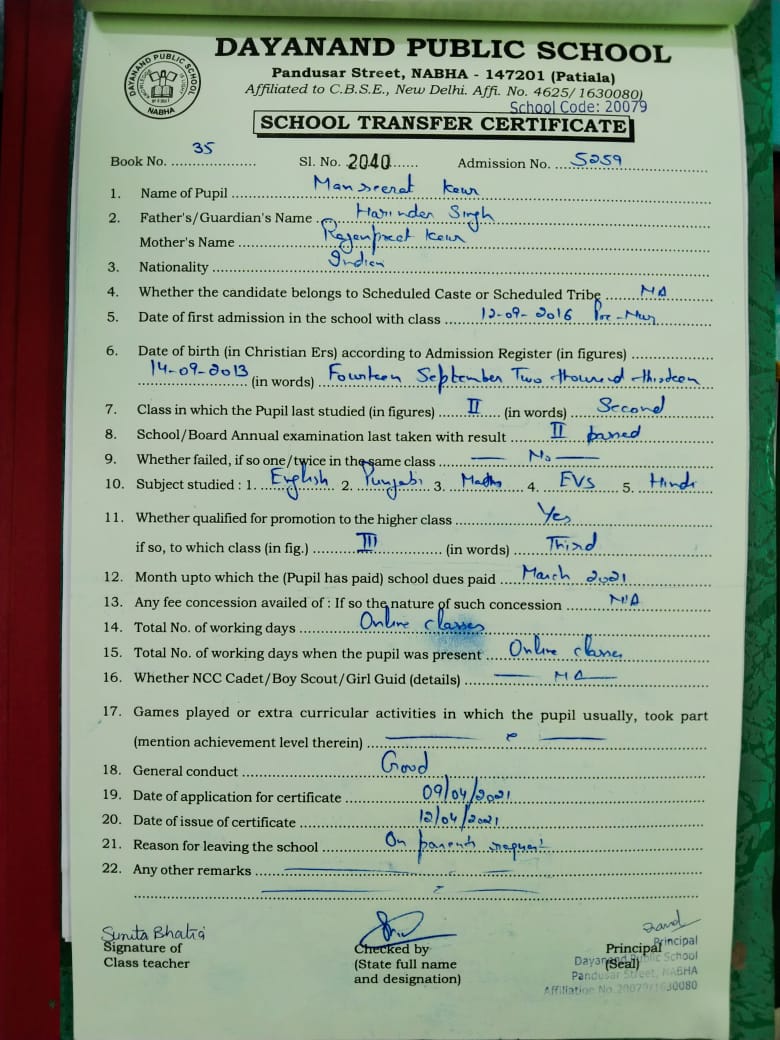 DAYANAND PUBLIC SCHOOL
DAYANAND PUBLIC SCHOOL
NABHA
Pandusar Street, NABHA - 147201 (Patiala)
Affiliated to C.B.S.E., New Delhi. Affi. No. 4625/ 1630080)
School Code: 20079
SCHOOL TRANSFER CERTIFICATE
Book No. 35 Sl. No. 2040 Admission No. 5259
1. Name of Pupil Manseerat Kaur
2. Father's/Guardian's Name Harinder Singh
Mother's Name Rajanpreet Kaur
3. Nationality Indian
4. Whether the candidate belongs to Scheduled Caste or Scheduled Tribe NA
5. Date of first admission in the school with class 12-09-2016 Pre-Nur
6. Date of birth (in Christian Ers) according to Admission Register (in figures)
14-09-2013 (in words) Fourteen September Two thousand thirteen
7. Class in which the Pupil last studied (in figures) II (in words) Second
8. School/Board Annual examination last taken with result II passed
9. Whether failed, if so one/twice in the same class No
10. Subject studied : 1. English 2. Punjabi 3. Maths 4. EVS 5. Hindi
11. Whether qualified for promotion to the higher class Yes
if so, to which class (in fig.) III (in words) Third
12. Month upto which the (Pupil has paid) school dues paid March 2021
13. Any fee concession availed of : If so the nature of such concession N/A
14. Total No. of working days Online classes
15. Total No. of working days when the pupil was present Online classes
16. Whether NCC Cadet/Boy Scout/Girl Guid (details) NA
17. Games played or extra curricular activities in which the pupil usually, took part
(mention achievement level therein)
18. General conduct Good
19. Date of application for certificate 09/04/2021
20. Date of issue of certificate 12/04/2021
21. Reason for leaving the school On parents request
22. Any other remarks
Sunita Bhatia
Signature of
Class teacher
Checked by
(State full name
and designation)
Principal
(Seal)
Principal
Dayanand Public School
Pandusar Street, NABHA
Affiliation No.20079/1630080